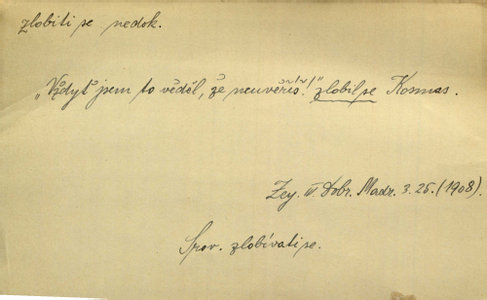 zlobiti se nedok.
„Vždyť jsem to věděl, že neuvěříš!" zlobil se Kosmas.
Zey. III. Dobr. Madr. 3. 25. (1908).
Srov. zlobívati se.